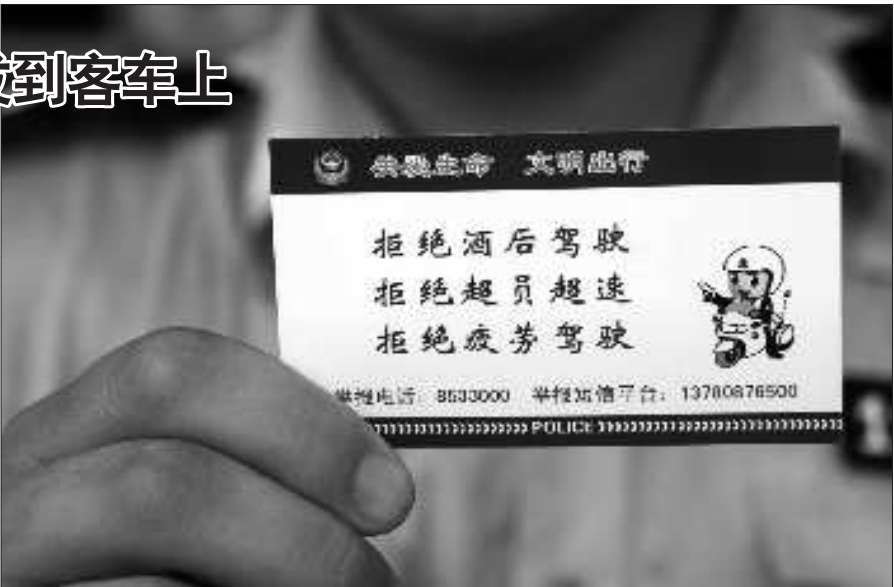 到客车上
生命 文明出行
拒绝酒后驾驶
拒绝超员超速
拒绝疲劳驾驶
举报电话：8533000 举报短信平台：13780876500
POLICE